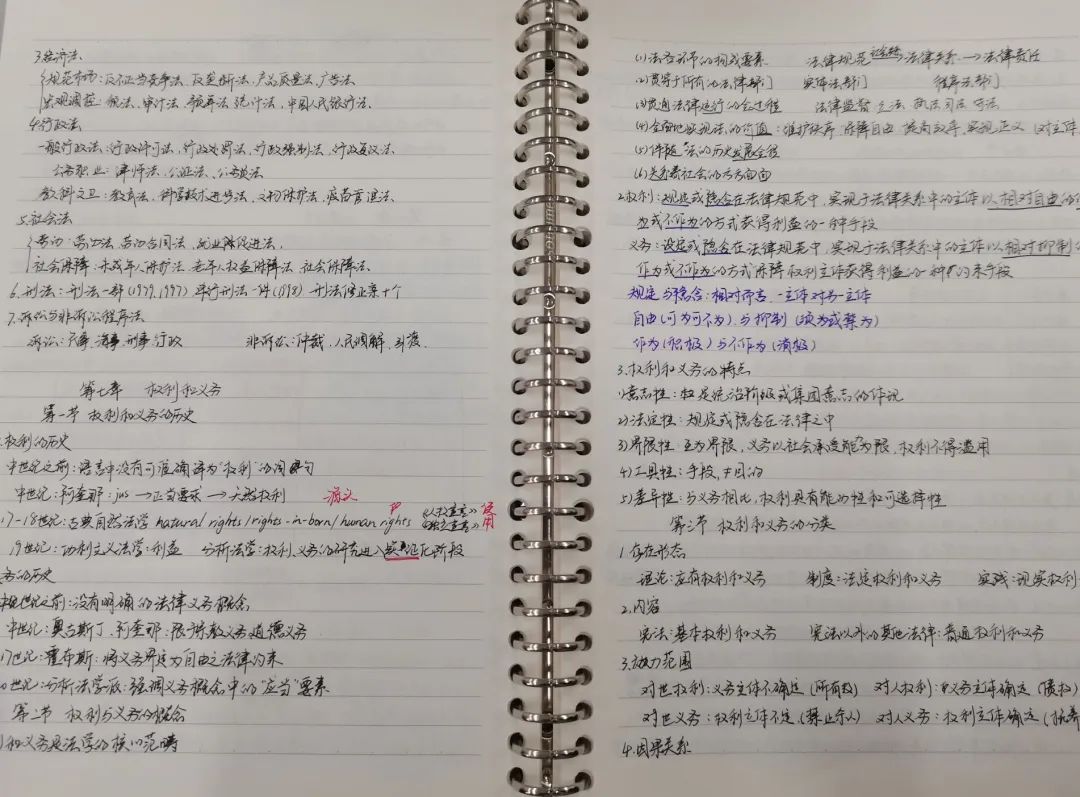 3.经济法
规范市场:反不正当竞争法、反垄断法、产品质量法、广告法
宏观调控:税法、审计法、预算法、统计法、中国人民银行法
4.行政法
一般行政法:行政许可法、行政处罚法、行政强制法、行政复议法
公务职业:律师法、公证法、公务员法
教科文卫:教育法、科学技术进步法、文物保护法、疫苗管理法
5.社会法
劳动:劳动法、劳动合同法、就业促进法、
社会保障:未成年人保护法、老年人权益保障法、社会保障法
6.刑法:刑法一部(1979,1997) 单行刑法一件(1998) 刑法修正案十个
7.诉讼与非诉讼程序法
诉讼:民事、海事、刑事、行政 非诉讼:仲裁、人民调解、引渡
第七章 权利和义务
第一节 权利和义务的历史
权利的历史
中世纪之前:语言中没有可准确译为“权利”的词句
中世纪:阿奎那:jus→正当要求→天然权利 滴义
17-18世纪:古典自然法学 natural rights/rights-in-born/human rights 《人权宣言》《独立宣言》使用
19世纪:功利主义法学:利益 分析法学:权利、义务的研究进入实证化阶段
务的历史
中世纪之前:没有明确的法律义务概念
中世纪:奥古斯丁、阿奎那:宗教义务、道德义务
17世纪:霍布斯:将义务界定为自由之法律约束
0世纪:分析法学派:强调义务概念中的“应当”要素
第二节 权利与义务的概念
和义务是法学的核心范畴
(1)法各部门的构成要素 法律规范→法律关系→法律责任
(2)贯穿于所有的法律部门 实体法部门 程序法部门
(3)贯通法律运行的全过程 法律监督 立法、执法、司法、守法
(4)全面地表现法的价值:维护秩序、保障自由、提高效率、实现正义(对主体
(5)伴随法的历史发展全程
(6)关系着社会的方方面面
2.权利:规定或隐含在法律规范中,实现于法律关系中的主体以相对自由的作
为或不作为的方式获得利益的一种手段
义务:设定或隐含在法律规范中,实现于法律关系中的主体以相对抑制的
作为或不作为的方式保障权利主体获得利益的一种约束手段
规定与隐含:相对而言,一主体对另一主体
自由(可为可不为)与抑制(须为或禁为)
作为(积极)与不作为(消极)
3.权利和义务的特点
1)意志性:都是统治阶级或集团意志的体现
2)法定性:规定或隐含在法律之中
3)界限性:互为界限,义务以社会承受能力为限,权利不得滥用
4)工具性:手段,≠目的
5)差异性:与义务相比,权利具有能动性和可选择性
第三节 权利和义务的分类
1.存在形态
理论:应有权利和义务 制度:法定权利和义务 实践:现实权利
2.内容
宪法:基本权利和义务 宪法以外的其他法律:普通权利和义务
3.效力范围
对世权利:义务主体不确定(所有权) 对人权利:义务主体确定(债权)
对世义务:权利主体不定(禁止杀人) 对人义务:权利主体确定(抚养
4.因果关系